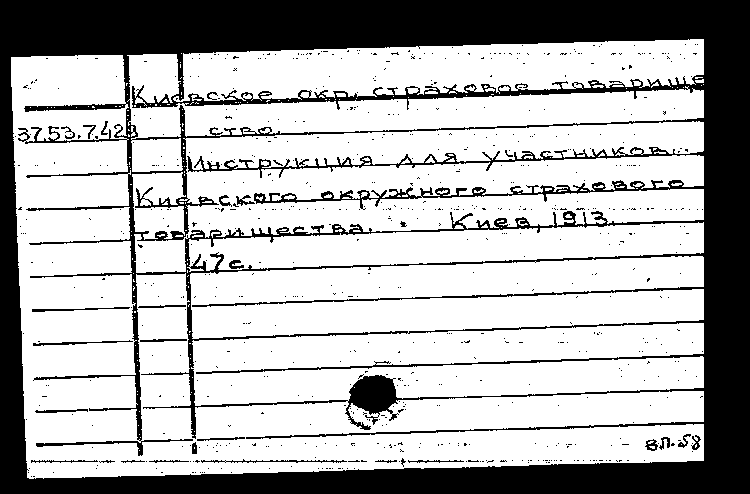 Киевское окр. страховое товарище
37.53.7.423 ство.
Инструкция для участников...
Киевского окружного страхового
товарищества. Киев, 1913.
47с.
ВП.58